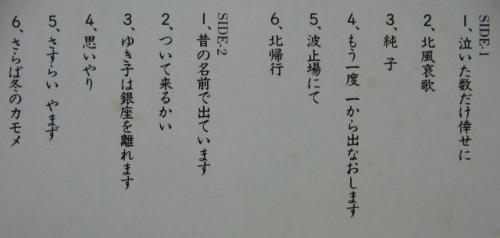 SIDE.1
1、泣いた数だけ倖せに
2、北風哀歌
3、純 子
4、もう一度 一から出なおします
5、波止場にて
6、北帰行
SIDE.2
1、昔の名前で出ています
2、ついて来るかい
3、ゆき子は銀座を離れます
4、思いやり
5、さすらい やまず
6、さらば冬のカモメ